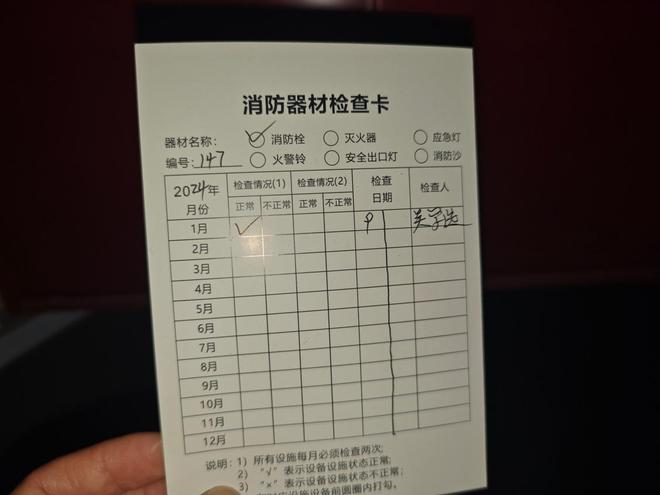 消防器材检查卡
器材名称: ✓消防栓 ○灭火器 ○应急灯
编号: 147 ○火警铃 ○安全出口灯 ○消防沙
2024年 检查情况(1) 检查情况(2) 检查 检查人
月份 正常 不正常 正常 不正常 日期
1月 ✓ 9
2月
3月
4月
5月
6月
7月
8月
9月
10月
11月
12月
说明: 1) 所有设施每月必须检查两次;
2) "√"表示设备设施状态正常;
3) "×"表示设备设施状态不正常;
设施设备前圆圈内打勾。